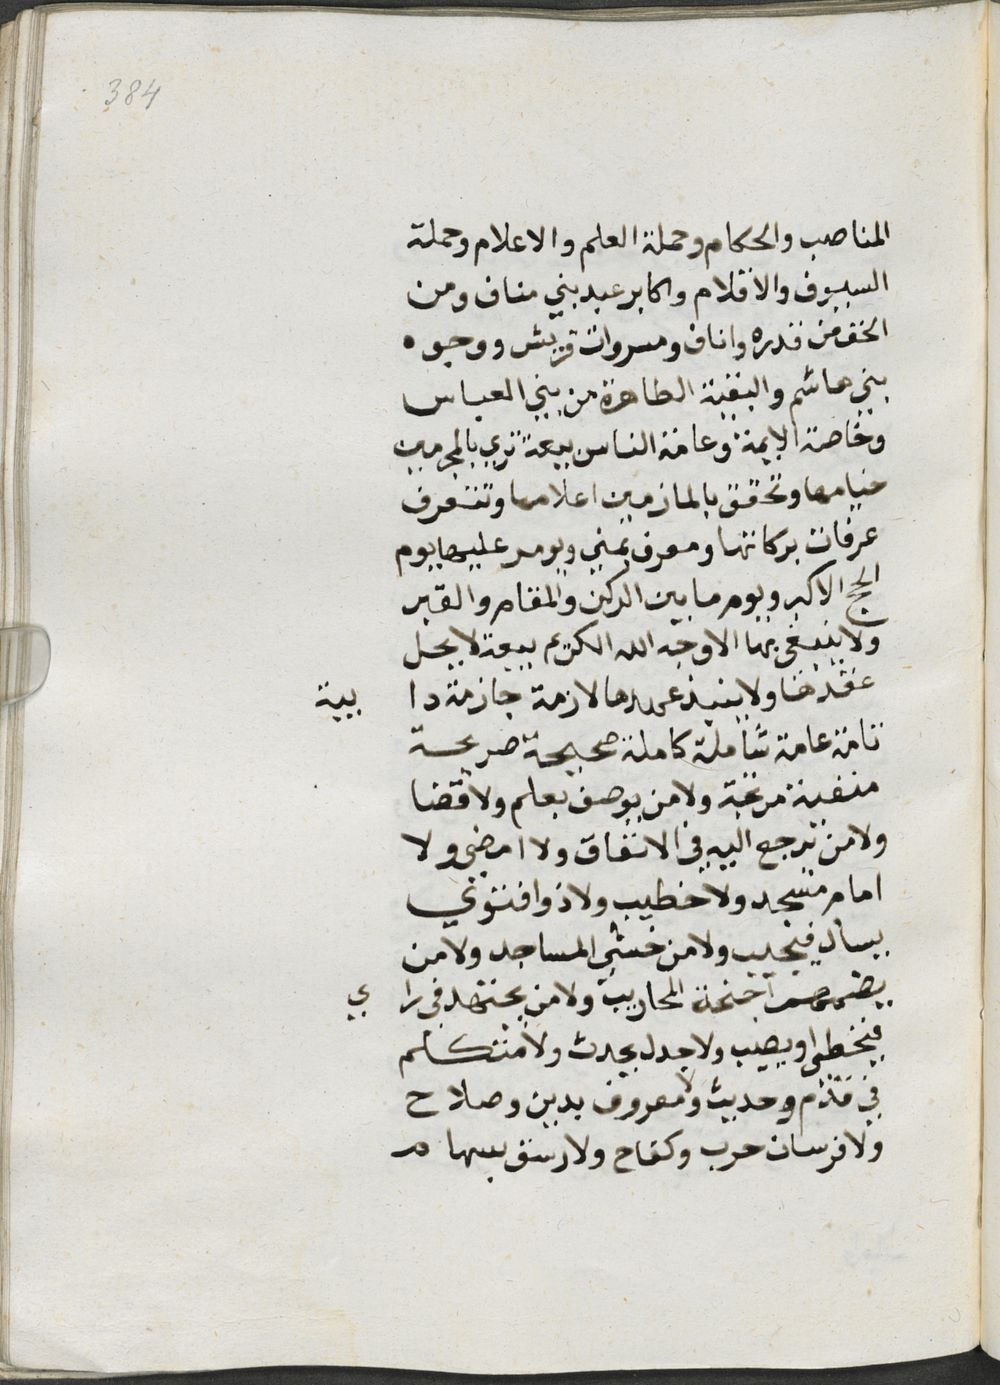 384
المناصب والحكام وحملة العلم والاعلام وحملة
السيوف والاقلام واكابر عبد بني مناف ومن
انخفض قدره واناف ومسروات قريش ووجوه
بني هاشم والبقية الطاهرة من بني العباس
وخاصة الايمة وعامة الناس بيعة تري بالحرمين
خيامها وتخفق بالمازمين اعلامها وتتعرف
عرفات بركاتها ومعرف بمني ويومر عليها يوم
الحج الاكبر ويوم ما بين الركن والمقام والقبر
ولا يبتغي بها الا وجه الله الكريم بيعة لا يحل
عقدها ولا ينبذ عهدها لازمة جازمة دا يبة
تامة عامة شاملة كاملة صحيحة صريحة
متعبة مريحة ولا من يوصف بعلم ولا قضا
ولا من يرجع اليه في الاتفاق ولا امرضي ولا
امام مسجد ولا خطيب ولا ذوا فتوي
يسال فيجيب ولا من خشي المساجد ولا من
يضمهم اجنحة المحاريب ولا من يجتهد في را ي
فيخطي او يصيب ولا جدل يحدث ولا متكلم
في قدم وحديث ولا معروف بدين وصلاح
ولا فرسان حرب وكفاح ولا راشق بسهام